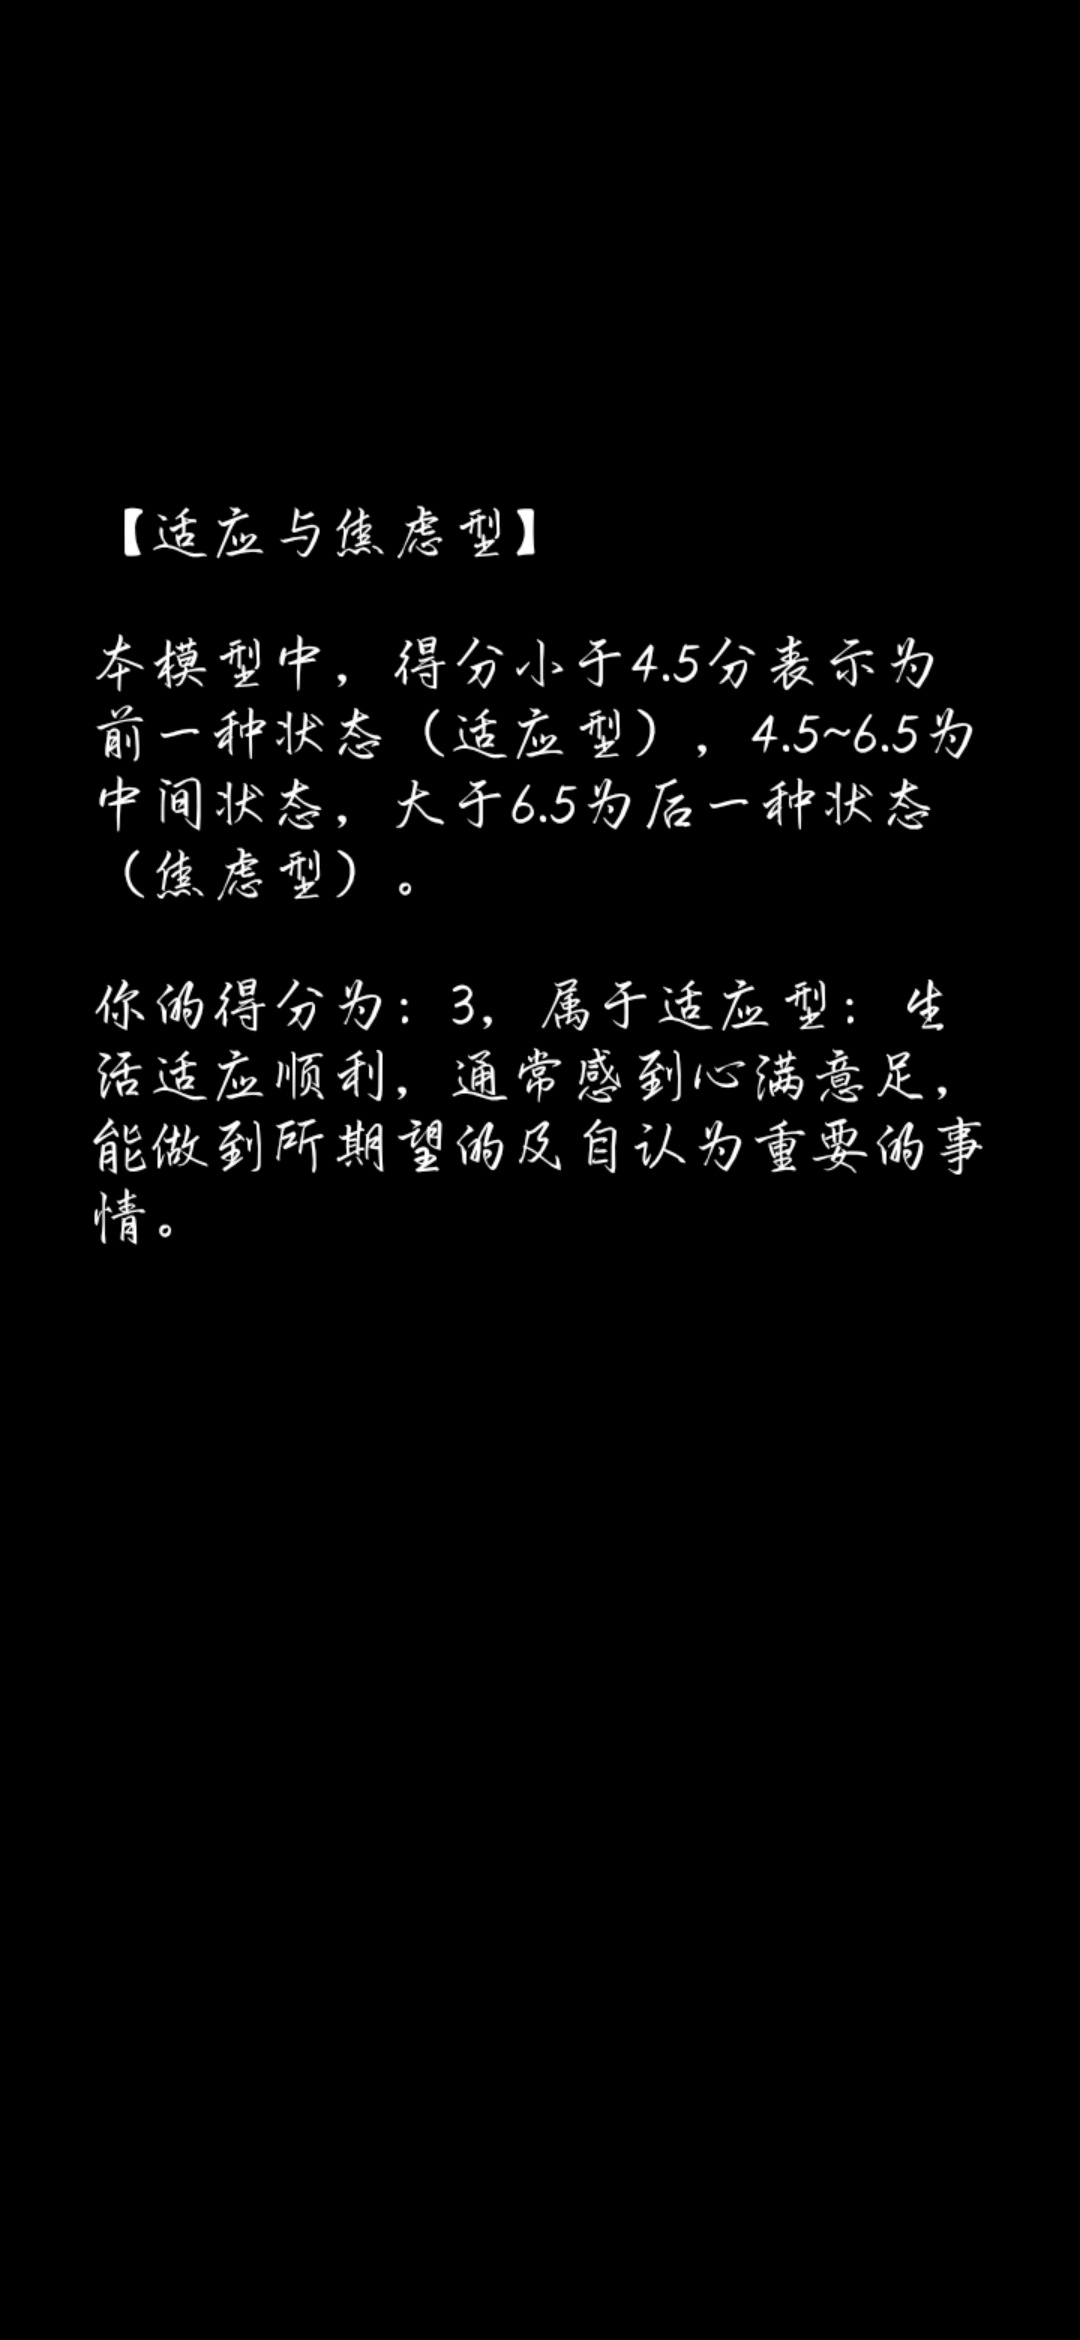 【适应与焦虑型】
本模型中，得分小于4.5分表示为
前一种状态（适应型），4.5~6.5为
中间状态，大于6.5为后一种状态
（焦虑型）。
你的得分为：3，属于适应型：生
活适应顺利，通常感到心满意足，
能做到所期望的及自认为重要的事
情。